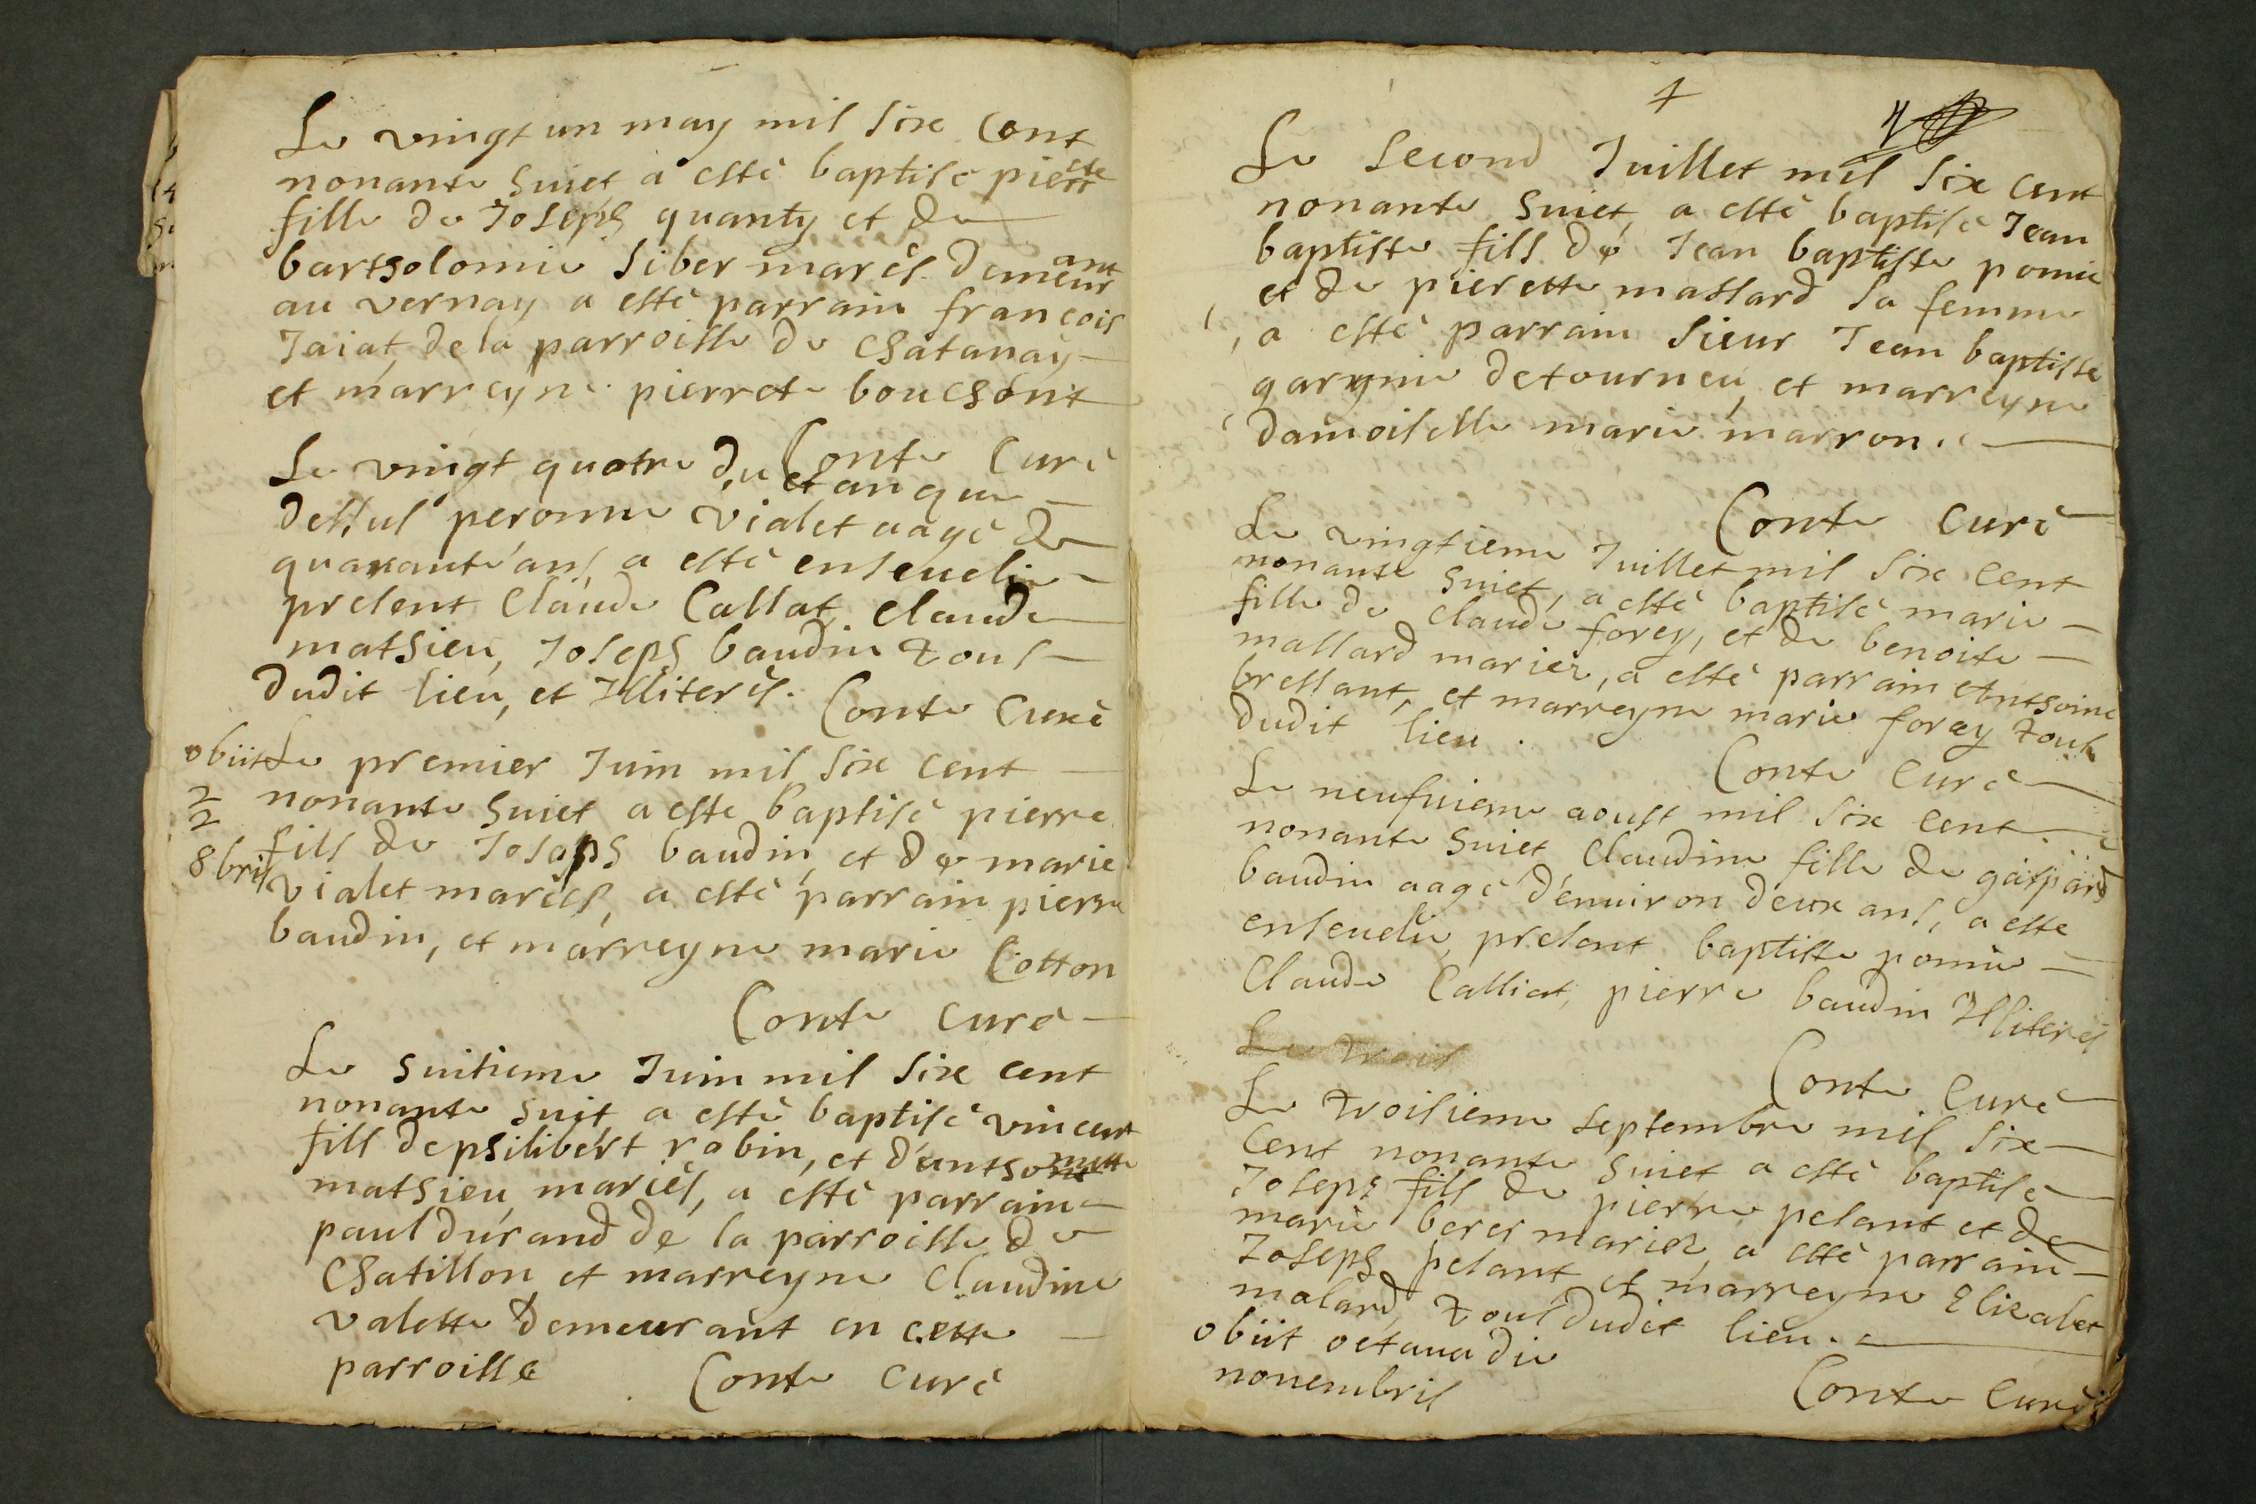 Le vingt un may mil six cent
nonante huict a esté baptisé pierrette
fille de Joseph quanty et de
barthelomie siber mariés demeurant
au vernay a esté parrain françois
Jaiat, de la parroisse de chatanay
et marreyne pierrete bouchont
Conte Curé
Le vingt quatre du et an que
dessus peronne vialet aagé de
quarante ans a esté ensevelie
present Claude Callat, Claude
mathieu, Joseph baudin tous
dudit lieu, et Illiterés. Conte Curé
obiit Le premier Juin mil six cent
2
2
nonante huict a esté baptisé pierre
8bris
fils de Joseph baudin, et de marie
vialet mariés, a esté parrain pierre
baudin, et marreyne marie Cotton
Conte curé
Le huitieme Juin mil six cent
nonante huit a esté baptisé vincent
fils de philibert robin, et d'anthonette
mathieu mariés, a esté parrain
paul durand de la parroisse de
Chatillon et marreyne Claudine
valette demeurant en cette
parroisse Conte Curé
4
Le second Juillet mil six cent
nonante huict, a esté baptisé Jean
baptiste fils de Jean baptiste pomie
et de pierette massard sa femme
, a esté parrain sieur Jean baptiste
garynie detourneu, et marreyne
damoiselle marie marron.
Conte Curé
Le vingtieme Juillet mil six cent
nonante huict, a esté baptisé marie
fille de Claude forey, et de benoite
massard mariez, a esté parrain Anthoine
bressant, et marreyne marie forey tous
dudit lieu.
Conte Curé
Le neufvieme aoust mil six cent
nonante huict Claudine fille de gaspard
baudin aagé d'environ deux ans, a esté
ensevelie, present baptiste pomie
Claude Calliat, pierre baudin Illiterés
Conte Curé
Le trois
Le troisieme septembre mil six
cent nonante huict a esté baptisé
Joseph fils de pierre pelant et de
marie beres mariez, a esté parrain
Joseph pelant et marreyne Elizabet
malard, tous dudit lieu.
obiit octava die
novembris
Conte Curé